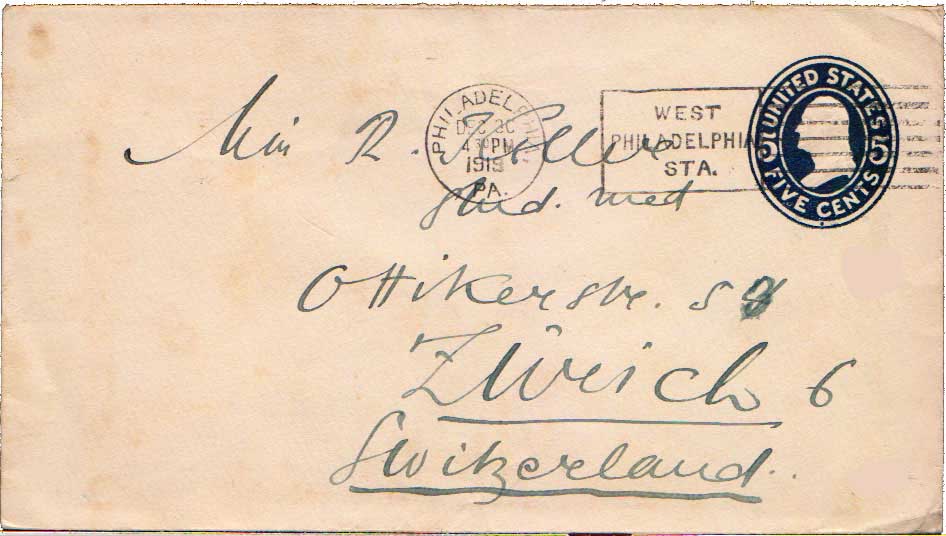 UNITED STATES
5 5
FIVE CENTS
PHILADELPHIA
DEC
4 30 PM
1919
PA.
WEST
PHILADELPHIA
STA.
Miss R.
stud. med
Ottikerstr.
Zürich 6
Switzerland.